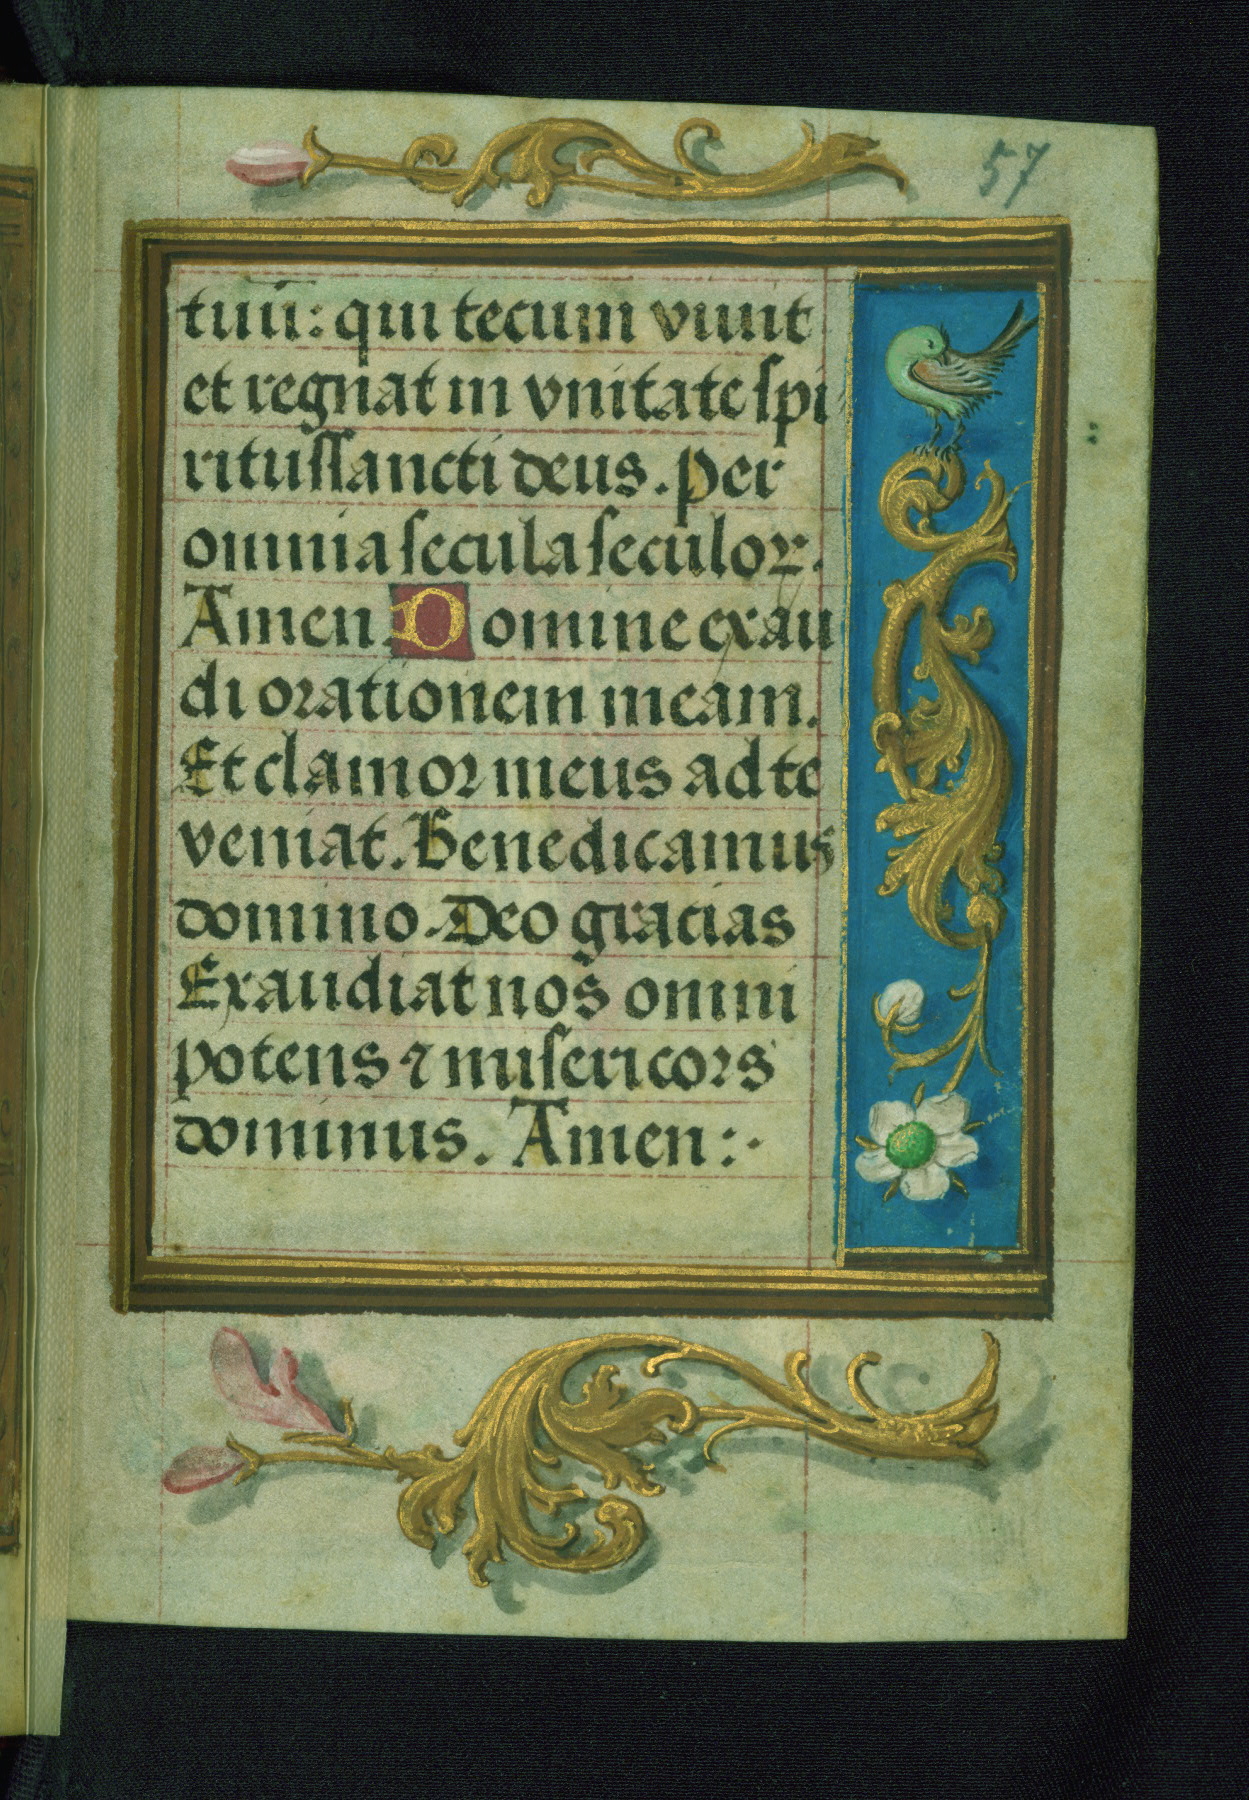 57
tuū: qui tecum viuit
et regnat in vnitate spi
ritussancti deus. Per
omnia secula seculoꝝ.
Amen. Domine exau
di orationem meam.
Et clamor meus ad te
veniat. Benedicamus
domino. Deo gracias
Exaudiat nos omni
potens ⁊ misericors
dominus. Amen:·